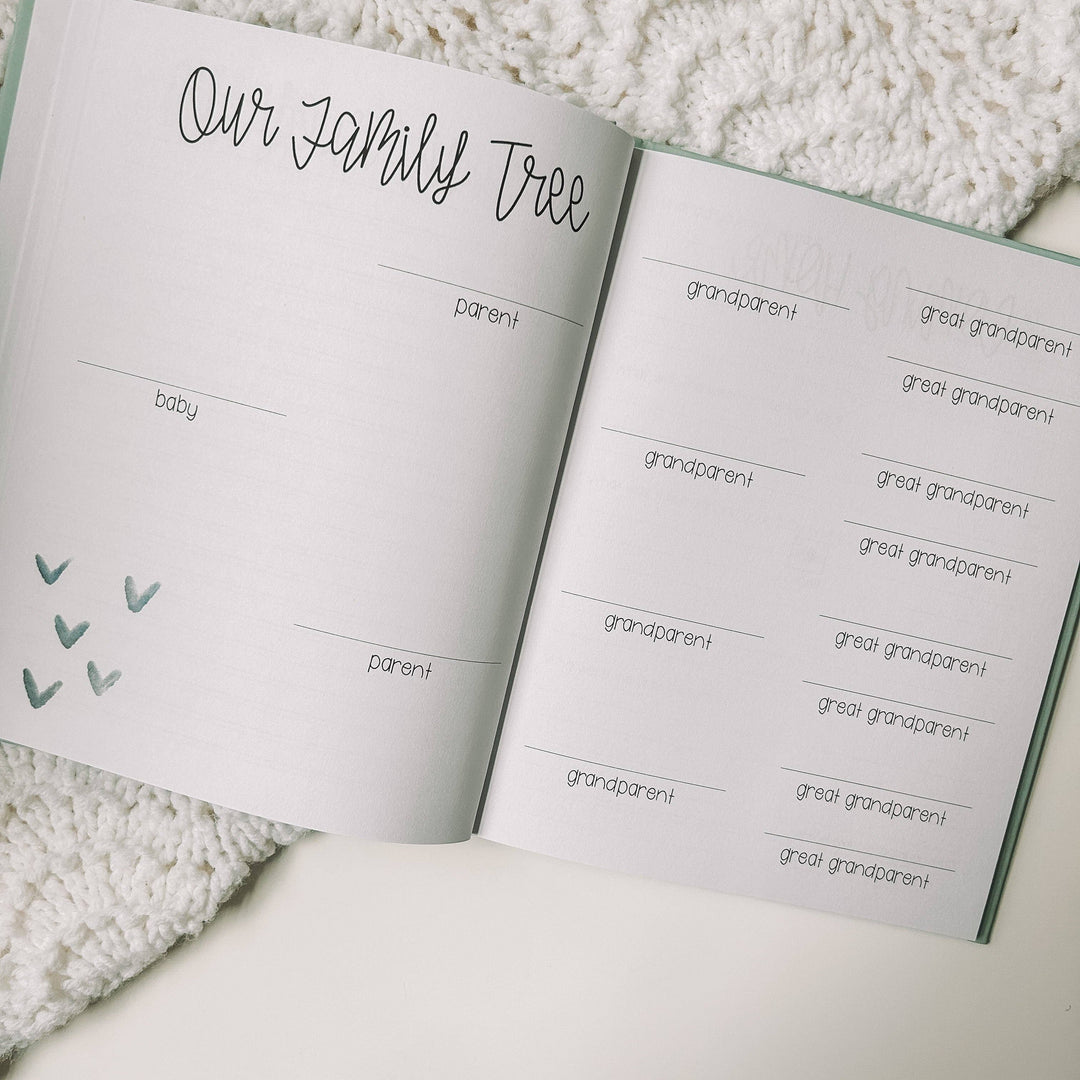 Our Family Tree
parent
baby
parent
grandparent
great grandparent
great grandparent
grandparent
great grandparent
great grandparent
grandparent
great grandparent
great grandparent
grandparent
great grandparent
great grandparent